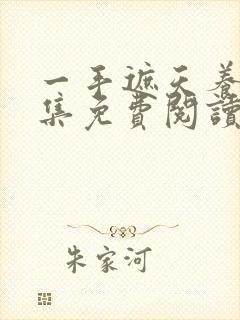 一手遮天養
集免費閱讀
朱家河